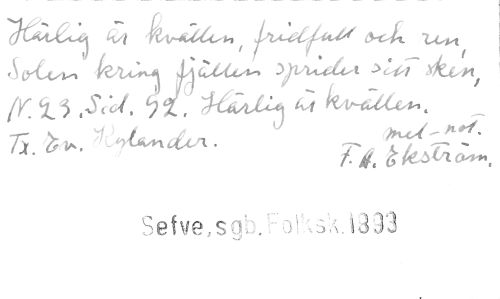 Härlig är kvällen, fridfull och ren,
Solen kring fjällen sprider sitt sken,
N. 23. Sid. 92. Härlig är kvällen.
mel-not.
Tx. Ev. Kylander. F. A. Ekström.
Sefve, sgb. Folksk. 1893